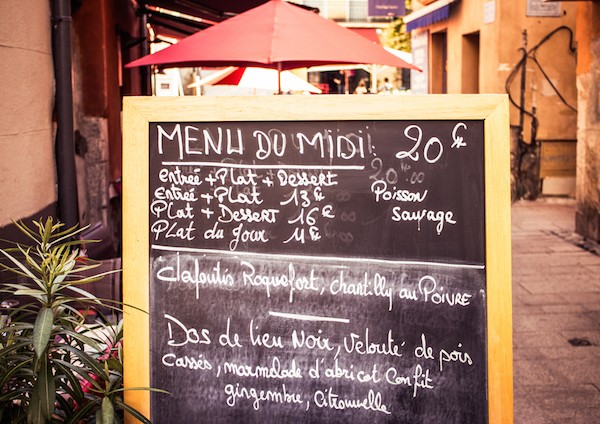 MENU DU MIDI 20 €
Entrée + Plat + Dessert
Entrée + Plat 13 €
Plat + Dessert 16 €
Plat du jour 11 €
Poisson
sauvage
Clafoutis Roquefort, chantilly au Poivre
Dos de lieu Noir, Velouté de pois
cassés, marmelade d'abricot confit
gingembre, Citrouille